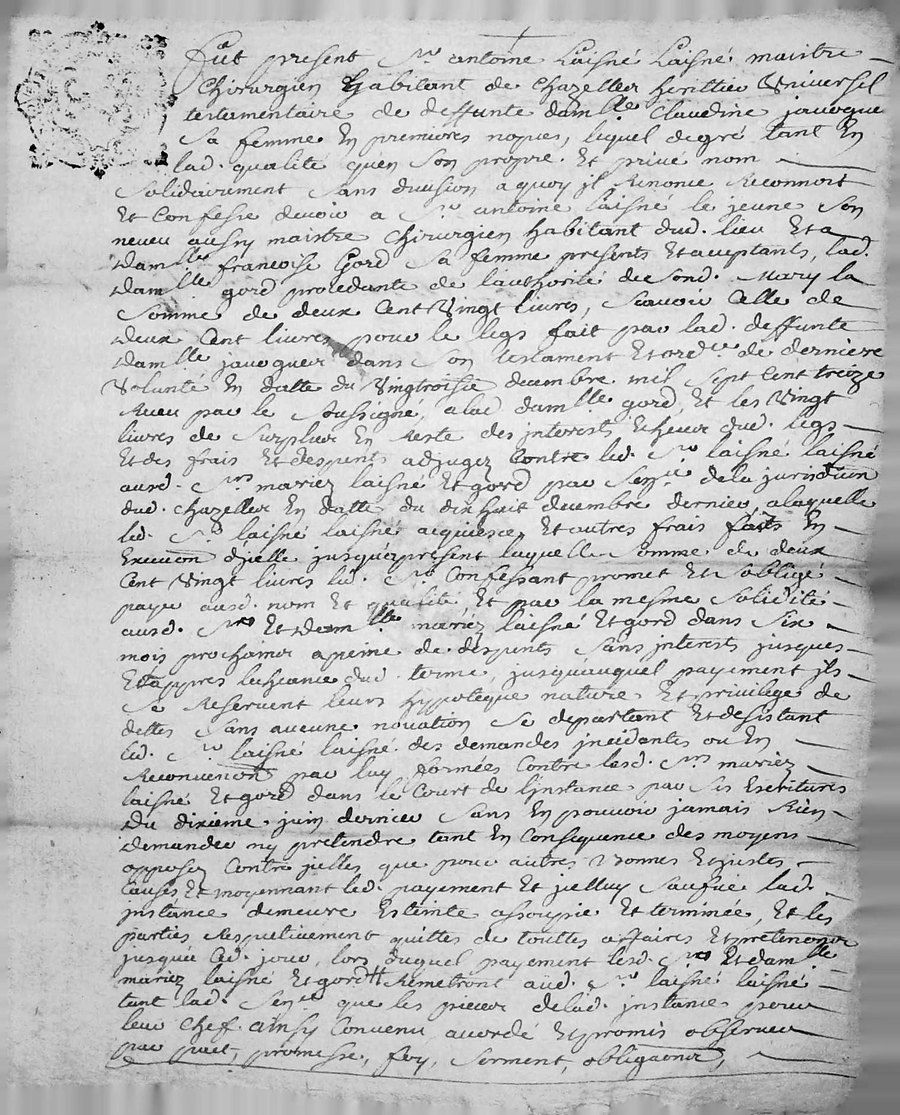 Fut present Sr. antoine Laisné Laisné maistre
Chirurgien habitant de Chazelles heritier Universel
testamentaire de deffunte damlle Claudine jauocque
Sa femme En premieres nopces, lequel degré tant En
lad. qualité quen Son propre Et privé nom
Solidairement Sans division a quoy jl Renonce Reconnoit
Et Confesse devoir a Sr. antoine laisné le jeune Son
neveu aussy maistre Chirurgien habitant dud. lieu Et a
damlle francoise Gord Sa femme presents Et aceptants, lad.
damlle gord procedante de lauthorité de Sond. Mary la
Somme de deux Cent Vingt livres, Scavoir Celle de
deux Cent livres pour le legs fait par lad. deffunte
damlle dans Son testament Et ordce de derniere
Volunté En datte du Vingtroisie decembre mil Sept Cent treize
Receu par le Soussigné, a lad damlle gord, Et les Vingt
livres de Surplus En Reste des jnterests Echeus dud. legs
Et des frais Et despents adjugez Contre led. Sr. laisné laisné
ausd. Srs mariez laisné Et gord par Sence de la jurisdiction
dud. Chazelles En datte du dixhuit decembre dernier, a laquelle
led. Sr. laisné laisné aquiesce, Et autres frais faits En
Execution djcelle jusques present laquelle Somme de deux
Cent Vingt livres led. Sr. Confessant promet Et Soblige
payer ausd. nom Et qualité, Et par la mesme Solidité
ausd. Srs Et damlle mariez laisné Et gord dans Six
mois prochains a peine de despents Sans jnterests jusques
Et appres lecheance dud. terme, jusquauquel payement jls
Se Reservent leurs hypoteque nature Et privilege de
dettes Sans aucune novation Se departant Et desistant
led. Sr. laisné laisné des demandes jncidantes ou En
Reconvention par luy formées Contre lesd. Srs mariez
laisné Et gord dans le Court de Linstance par Ses Escritures
du dixieme juin dernier Sans En pouvoir jamais Rien
demander ny pretendre tant En Consequence des moyens
opposez Contre jcelles que pour autres Et justes
Causes Et moyennant led. payement Et jcelluy lad.
jnstance demeure Esteinte assoupie Et terminée, Et les
parties Respectivement quittes de touttes affaires Et pretentions
jusques Ced. jour, lors duquel payement lesd. Srs Et damlle
mariez laisné Et gord Remetront aud. Sr. laisné laisné
tant lad. Sence que les pieces de lad. jnstance pour
leur Chef. ainsy Convenu acordé Et promis observer
par pact, promesse, foy, Serment, obligaons,